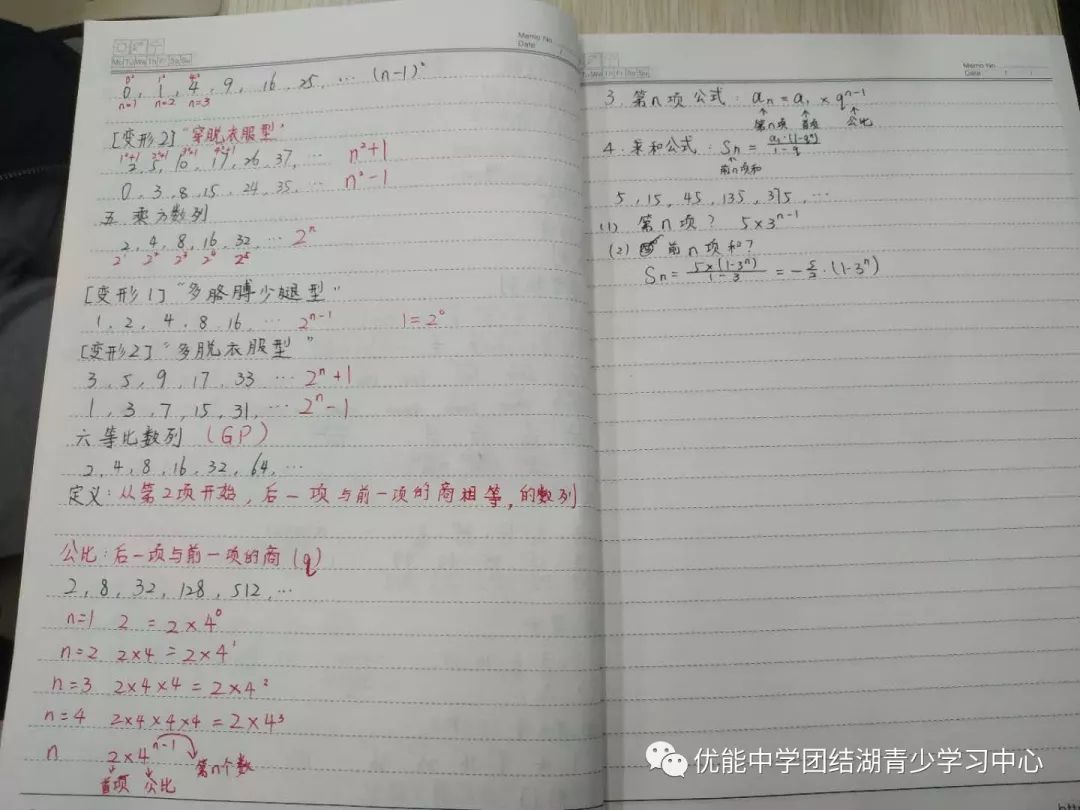 Memo No.
Date / /
Mo Tu We Th Fr Sa Su
0² 1² 4²
0, 1, 4, 9, 16, 25, … (n-1)²
n=1 n=2 n=3
[变形2] "穿脱衣服型"
1²+1 2²+1 3²+1 4²+1
2, 5, 10, 17, 26, 37, … n²+1
0, 3, 8, 15, 24, 35, … n²-1
五 乘方数列
2, 4, 8, 16, 32, … 2ⁿ
2¹ 2² 2³ 2⁴ 2⁵
[变形1] "多胳膊少腿型"
1, 2, 4, 8, 16, … 2ⁿ⁻¹ 1=2⁰
[变形2] "多脱衣服型"
3, 5, 9, 17, 33 … 2ⁿ+1
1, 3, 7, 15, 31, … 2ⁿ-1
六 等比数列 (GP)
2, 4, 8, 16, 32, 64, …
定义: 从第2项开始, 后一项与前一项的商相等, 的数列
公比: 后一项与前一项的商 (q)
2, 8, 32, 128, 512, …
n=1 2 = 2×4⁰
n=2 2×4 = 2×4¹
n=3 2×4×4 = 2×4²
n=4 2×4×4×4 = 2×4³
n 2×4ⁿ⁻¹ 第n个数
首项 公比
Mo Tu We Th Fr Sa Su
Memo No.
Date / /
3. 第n项公式: aₙ = a₁ × qⁿ⁻¹
第n项 首项 公比
4. 求和公式: Sₙ = a₁·(1-qⁿ) / 1-q
前n项和
5, 15, 45, 135, 375, …
(1) 第n项? 5×3ⁿ⁻¹
(2) 前n项和?
Sₙ = 5×(1-3ⁿ) / 1-3 = -5/2·(1-3ⁿ)
优能中学团结湖青少学习中心